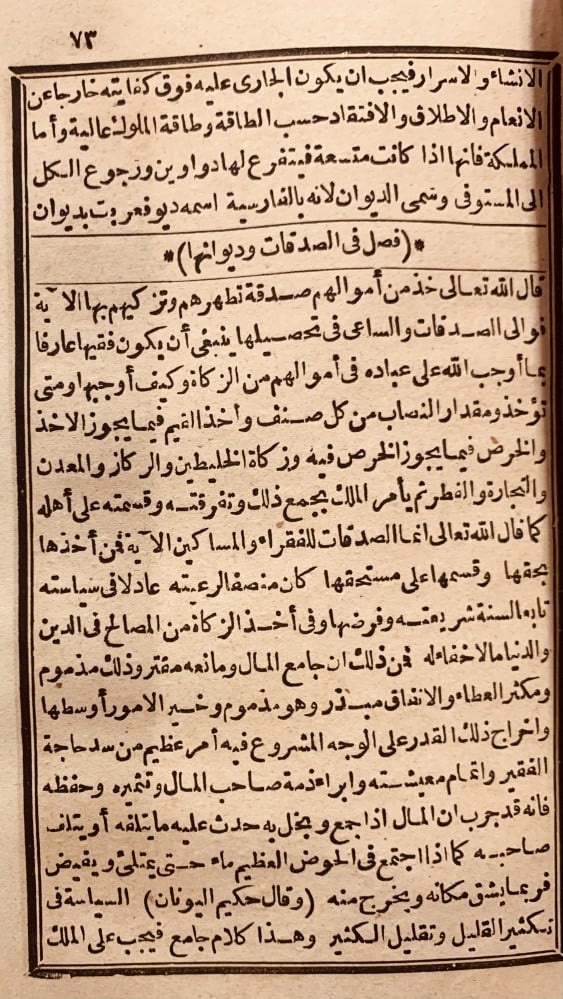 ٧٣
الانشاء والاسرار فيجب ان يكون الجارى عليه فوق كفايته خارجا عن
الانعام والاطلاق والافتقاد حسب الطاقة وطاقة الملوك عالية وأما
المملكة فانها اذا كانت متسعة فيتفرع لها دواوين ورجوع الكل
الى المستوفى وسمى الديوان لانه بالفارسية اسمه ديو فعربت بديوان
*(فصل فى الصدقات وديوانها)*
قال الله تعالى خذ من أموالهم صدقة تطهرهم وتزكيهم بها الآية
فوالى الصدقات والساعى فى تحصيلها ينبغى أن يكون فقيها عارفا
بما أوجب الله على عباده فى أموالهم من الزكاة وكيف أوجبها ومتى
تؤخذ ومقدار النصاب من كل صنف وأخذ القيم فيما يجوز الاخذ
والخرص فيما يجوز الخرص فيه وزكاة الخليطين والركاز والمعدن
والتجارة والفطر ثم يأمر الملك بجمع ذلك وتفرقته وقسمته على أهله
كما قال الله تعالى انما الصدقات للفقراء والمساكين الآية فمن أخذها
بحقها وقسمها على مستحقها كان منصفا لرعيته عادلا فى سياسته
تابعا لسنة شريعته وفرضها وفى أخذ الزكاة من المصالح فى الدين
والدنيا مالا خفاء له فمن ذلك ان جامع المال ومانعه مقتر وذلك مذموم
ومكثر العطاء والانفاق مبذر وهو مذموم وخير الامور أوسطها
واخراج ذلك القدر على الوجه المشروع فيه أمر عظيم من سد حاجة
الفقير واتمام معيشته وابراء ذمة صاحب المال وتثميره وحفظه
فانه قد جرب ان المال اذا جمع وبخل به حدث عليه ما يتلفه أو يتلف
صاحبه كما اذا اجتمع فى الحوض العظيم ماء حتى يمتلئ ويفيض
فربما يشق مكانه ويخرج منه (وقال حكيم اليونان) السياسة فى
تكثير القليل وتقليل الكثير وهذا كلام جامع فيجب على الملك